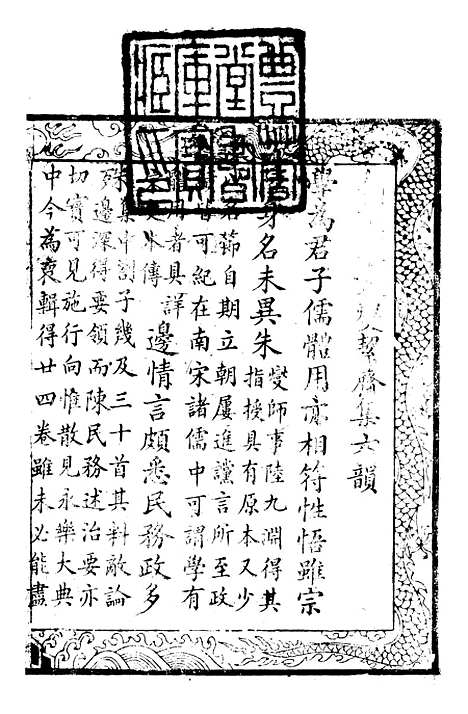 豐華堂書庫寶藏印
燮絜齋集六韻
學為君子儒體用亦相符性悟雖宗
身名未異朱
燮師事陸九淵得其
指授具有原本又少
名節自期立朝屢進讜言所至政
皆可紀在南宋諸儒中可謂學有
用者具詳
本傳
邊情言頗悉民務政多
殊
集中劄子幾及三十首其料敵論
邊深得要領而陳民務述治要亦
切實可見施行向惟散見永樂大典
中今為裒輯得廿四卷雖未必能盡